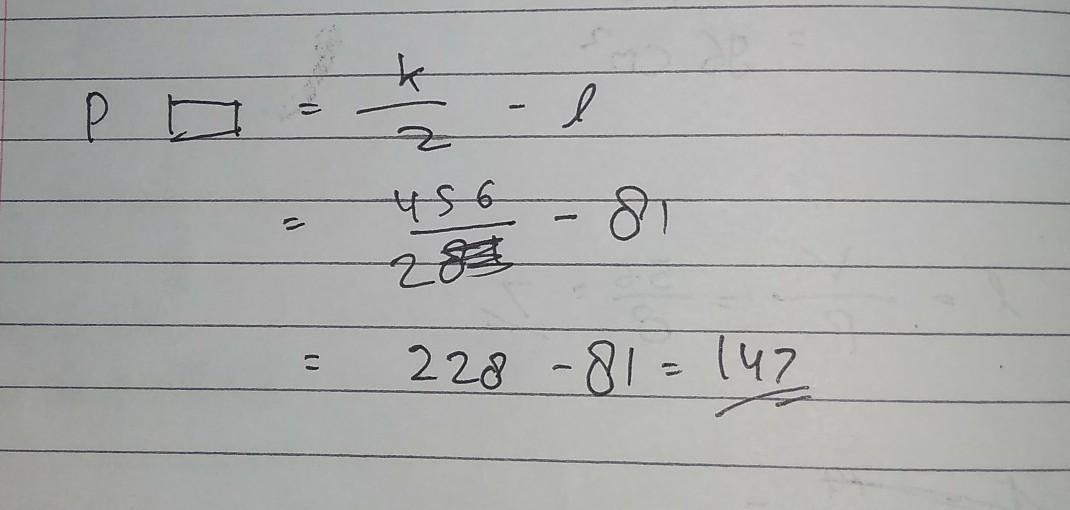 P ▭ = k/2 - l
= 456/2 - 81
= 228 - 81 = 147